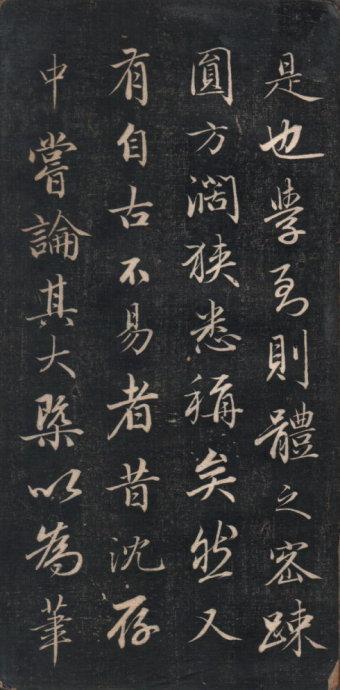 是也學至則體之密疎
圓方濶狹悉稱矣然又
有自古不易者昔沈存
中嘗論其大槩以為筆